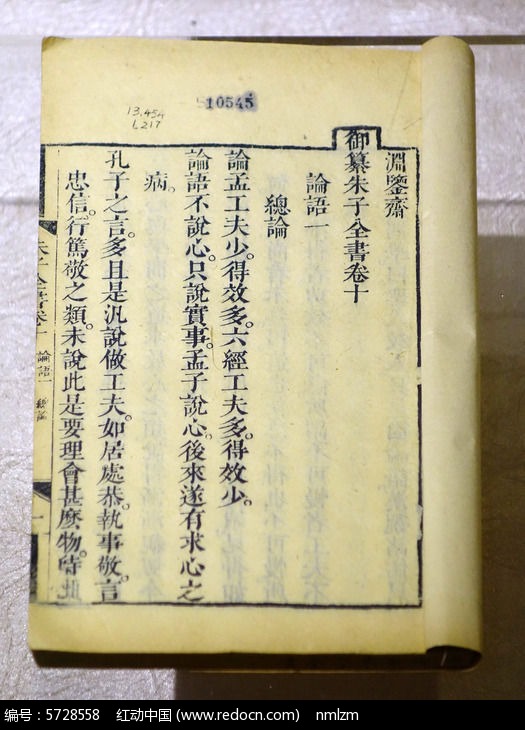 10545
13.454
L217
淵鑒齋
御纂朱子全書卷十
論語一
總論
論孟工夫少。得效多。六經工夫多。得效少。
論語不說心。只說實事。孟子說心。後來遂有求心之
病。
孔子之言。多且是汎說做工夫。如居處恭。執事敬。言
忠信。行篤敬之類。未說此是要理會甚麽物。待此
朱子全書卷十 論語一 總論
编号：5728558 红动中国 (www.redocn.com) nmlzm